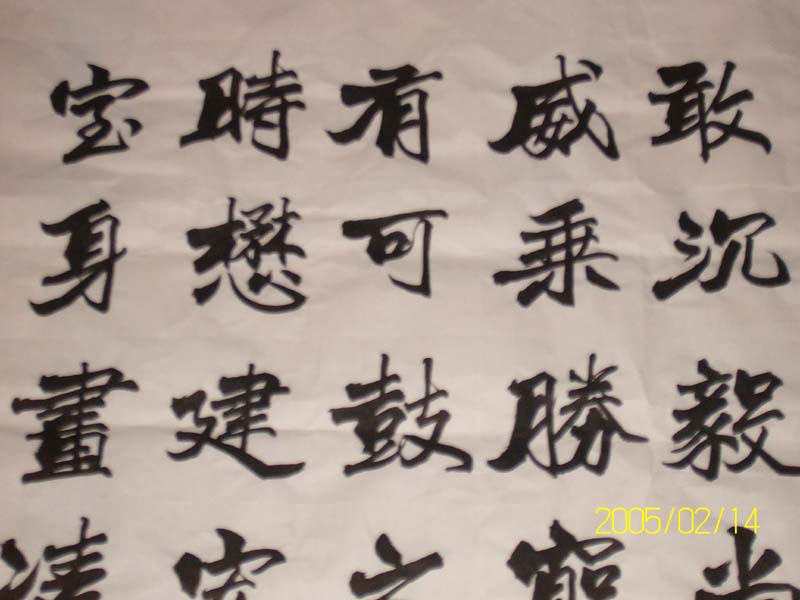 敢沉毅
威乘勝
有可鼓
時懋建
宝身畫
2005/02/14